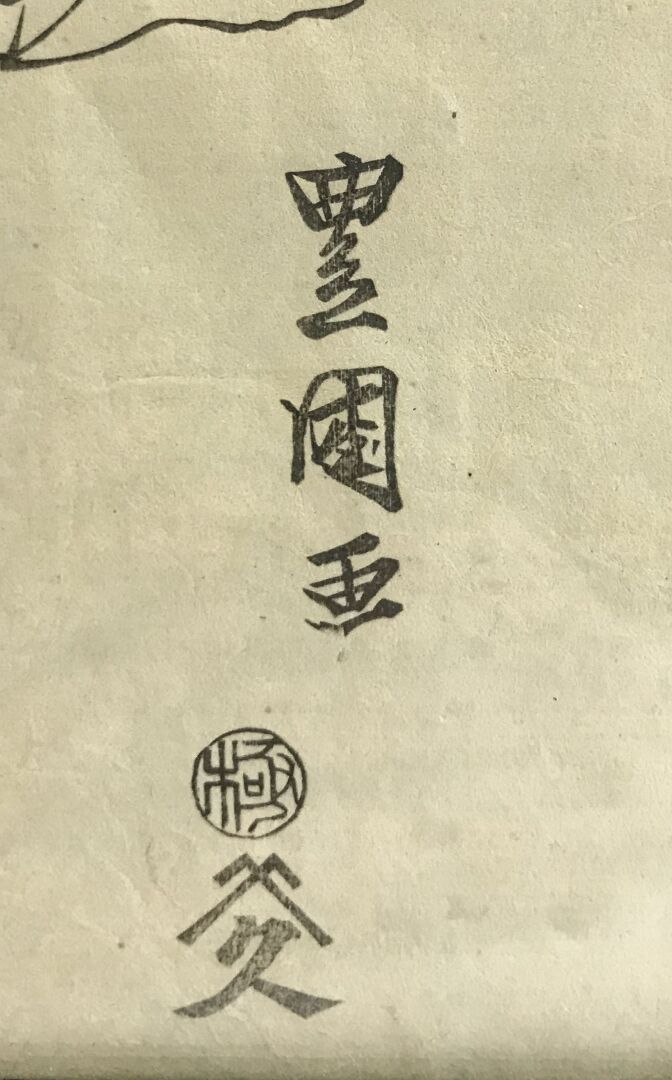 豊國画
極
久